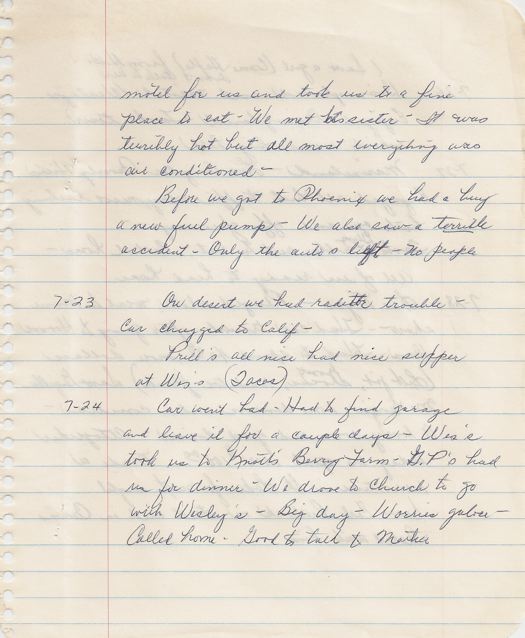 motel for us and took us to a fine
place to eat - We met his sister - It was
terribly hot but all most everything was
air conditioned -
Before we got to Phoenix we had a buy
a new fuel pump - We also saw a terrible
accident - Only the autos left - No people
7-23 On desert we had radiator trouble -
Car chugged to Calif -
Prill's all nice had nice supper
at Wes's (Tacos)
7-24 Car went bad - Had to find garage
and leave it for a couple days - Wes's
took us to Knott's Berry Farm - G.P's had
us for dinner - We drove to church to go
with Wesley's - Big day - Worries galore -
Called home - Good to talk to Mother